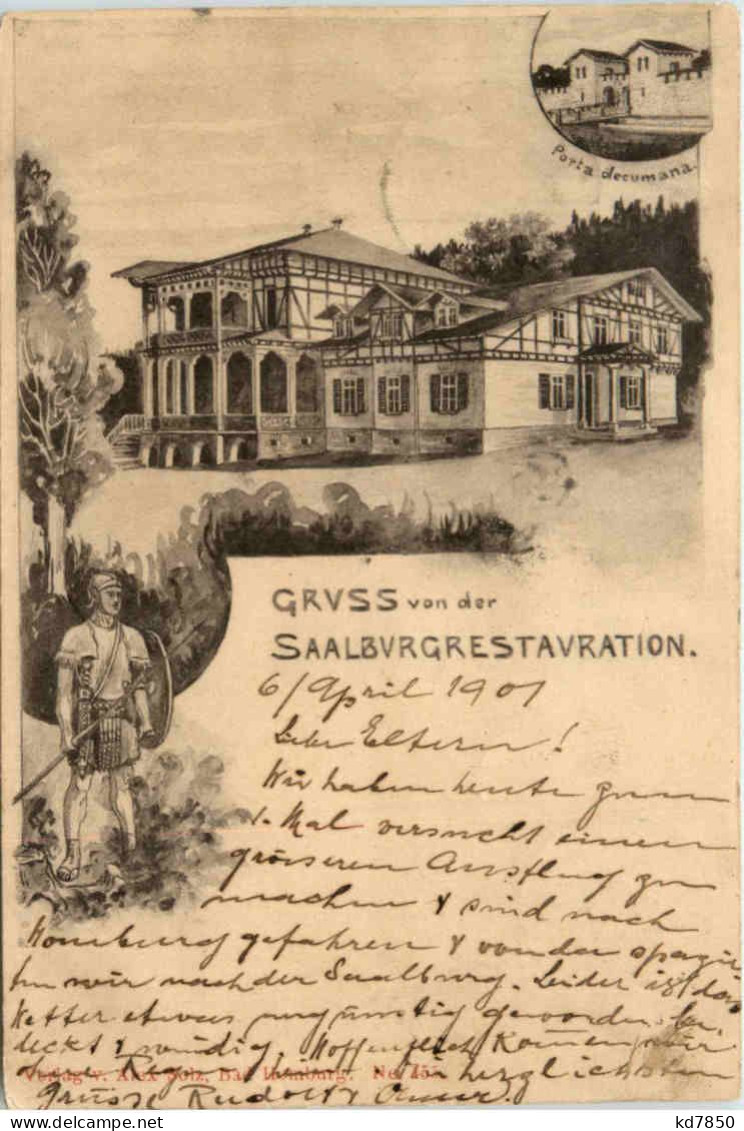 Porta decumana.
GRVSS von der
SAALBVRGRESTAVRATION.
6/April 1901
Liebe Eltern!
Wir haben heute zum
1. Mal versucht einen
grösseren Ausflug zu
machen & sind nach
Homburg gefahren & von da spazier
ten wir nach der Saalburg. Leider ist das
Wetter etwas ungünstig geworden, be-
deckt & windig. Hoffentlich kommen wir
ohne Regen heim
Verlag v. Alex Bad Homburg. No.
herzlichsten
Grüsse Rudolf &
kd7850